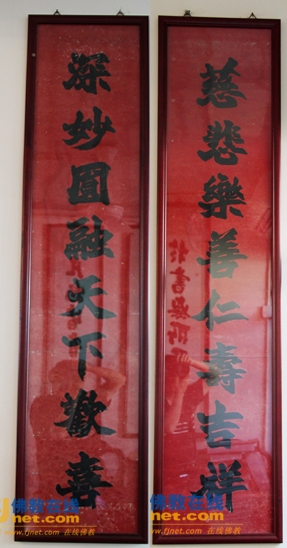 慈悲樂善仁壽吉祥
深妙圓融天下歡喜
佛教在线
net.com
www.fjnet.com 在线佛教
佛教在线
net.com
www.fjnet.com 在线佛教